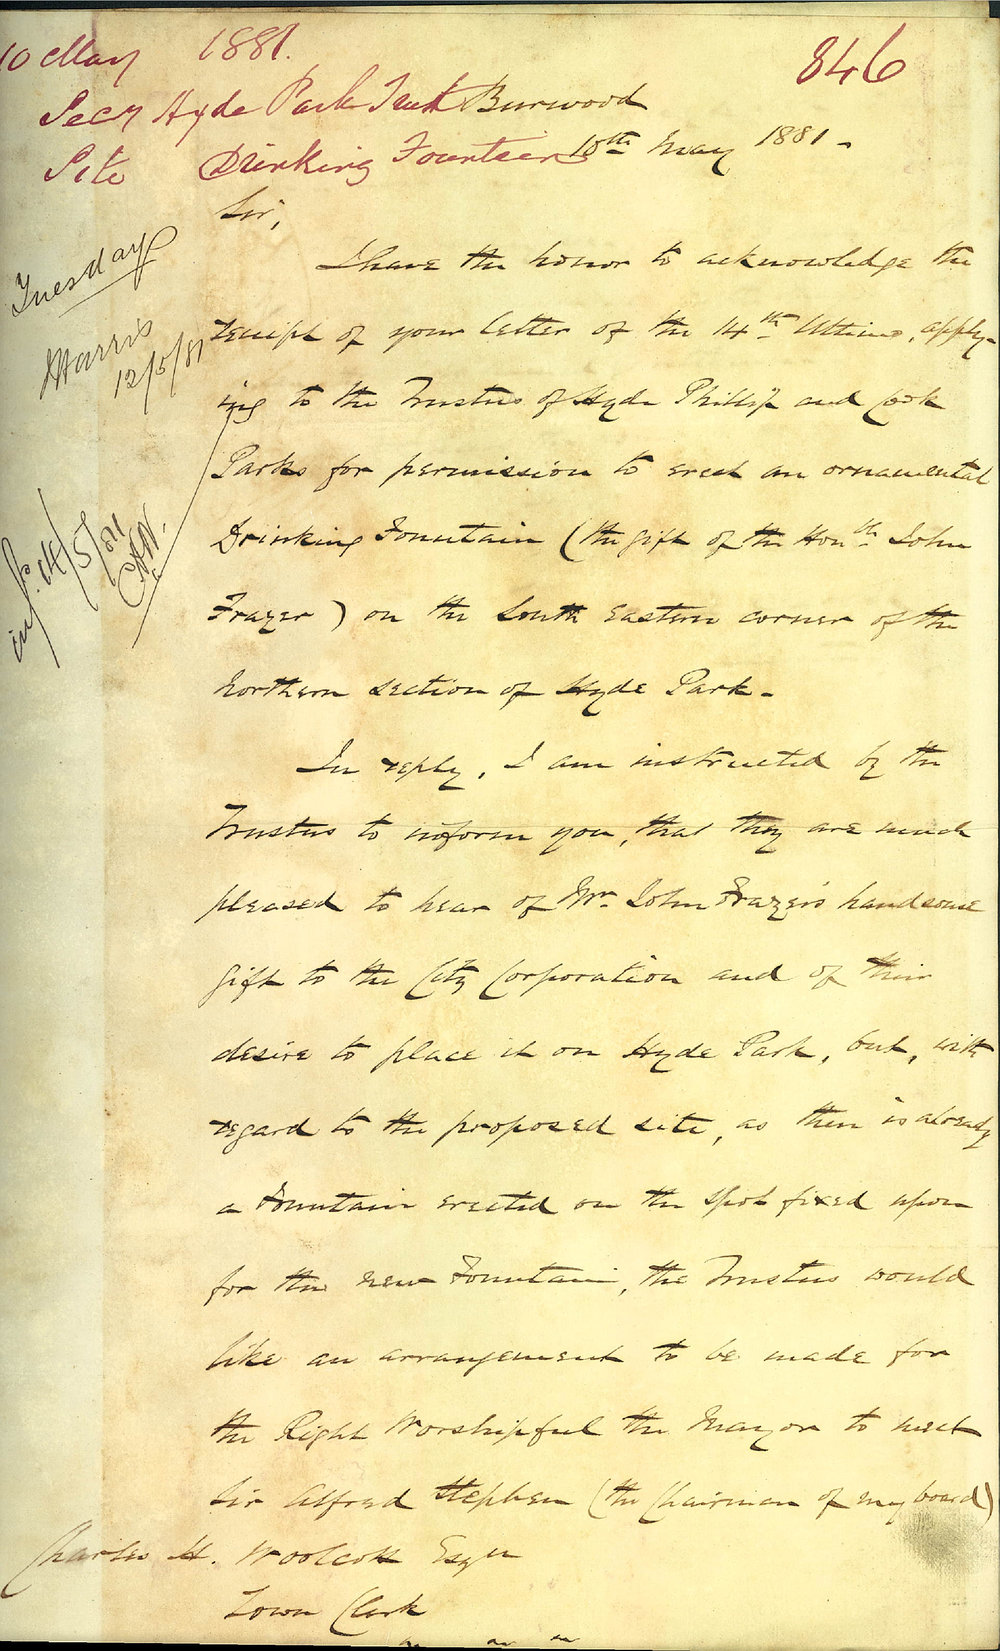 10 May 1881.
846
Secy Hyde Park Trust Burwood
Site Drinking Founteen 10th May 1881 -
Sir,
I have the honor to acknowledge the
receipt of your letter of the 14th Ultimo, apply-
ing to the Trustees of Hyde Phillip and Cook
Parks for permission to erect an ornamental
Drinking Fountain (the gift of the Honble John
Frazer) on the South Eastern corner of the
Northern section of Hyde Park -
In reply, I am instructed by the
Trustees to inform you, that they are much
pleased to hear of Mr. John Frazer's handsome
gift to the City Corporation and of their
desire to place it on Hyde Park, but, with
regard to the proposed site, as there is already
a Fountain erected on the spot fixed upon
for the new Fountain, the Trustees would
like an arrangement to be made for
the Right Worshipful the Mayor to meet
Sir Alfred Stephen (the Chairman of my board)
Charles H. Woolcott Esqre
Town Clerk
Tuesday
Harris
12/5/81
14/5/81